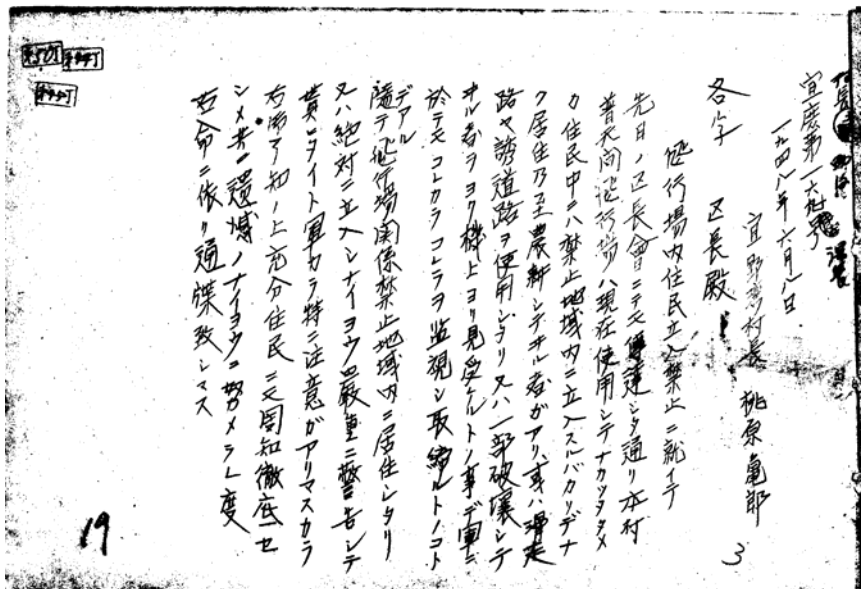 宜庶第一六四号
一九四八年六月八日
宜野湾村長 桃原亀郎
各字 区長殿
飛行場内住民立入禁止ニ就イテ
先日ノ区長會ニテモ傳達シタ通リ本村
普天間飛行場ハ現在使用シテナカッタタメ
カ住民中ニハ禁止地域内ニ立入スルバカリデナ
ク居住乃至農耕シテヲル者ガアリ、或ハ滑走
路ヤ誘道路ヲ使用シタリ又ハ一部破壊シテ
ヲル者ヲヨク機上ヨリ見受ケルトノ事デ軍ニ
於テモコレカラコレラヲ監視シ取締ルトノコト
デアル
隨テ飛行場関係禁止地域内ニ居住シタリ
又ハ絶対ニ立入シナイヨウ嚴重ニ警告シテ
貰ヒタイト軍カラ特ニ注意ガアリマスカラ
右御了知ノ上充分住民ニ又周知徹底セ
シメ共ノ遺憾ノナイヨウニ努メラレ度
右命ニ依リ通牒致シマス
3
19